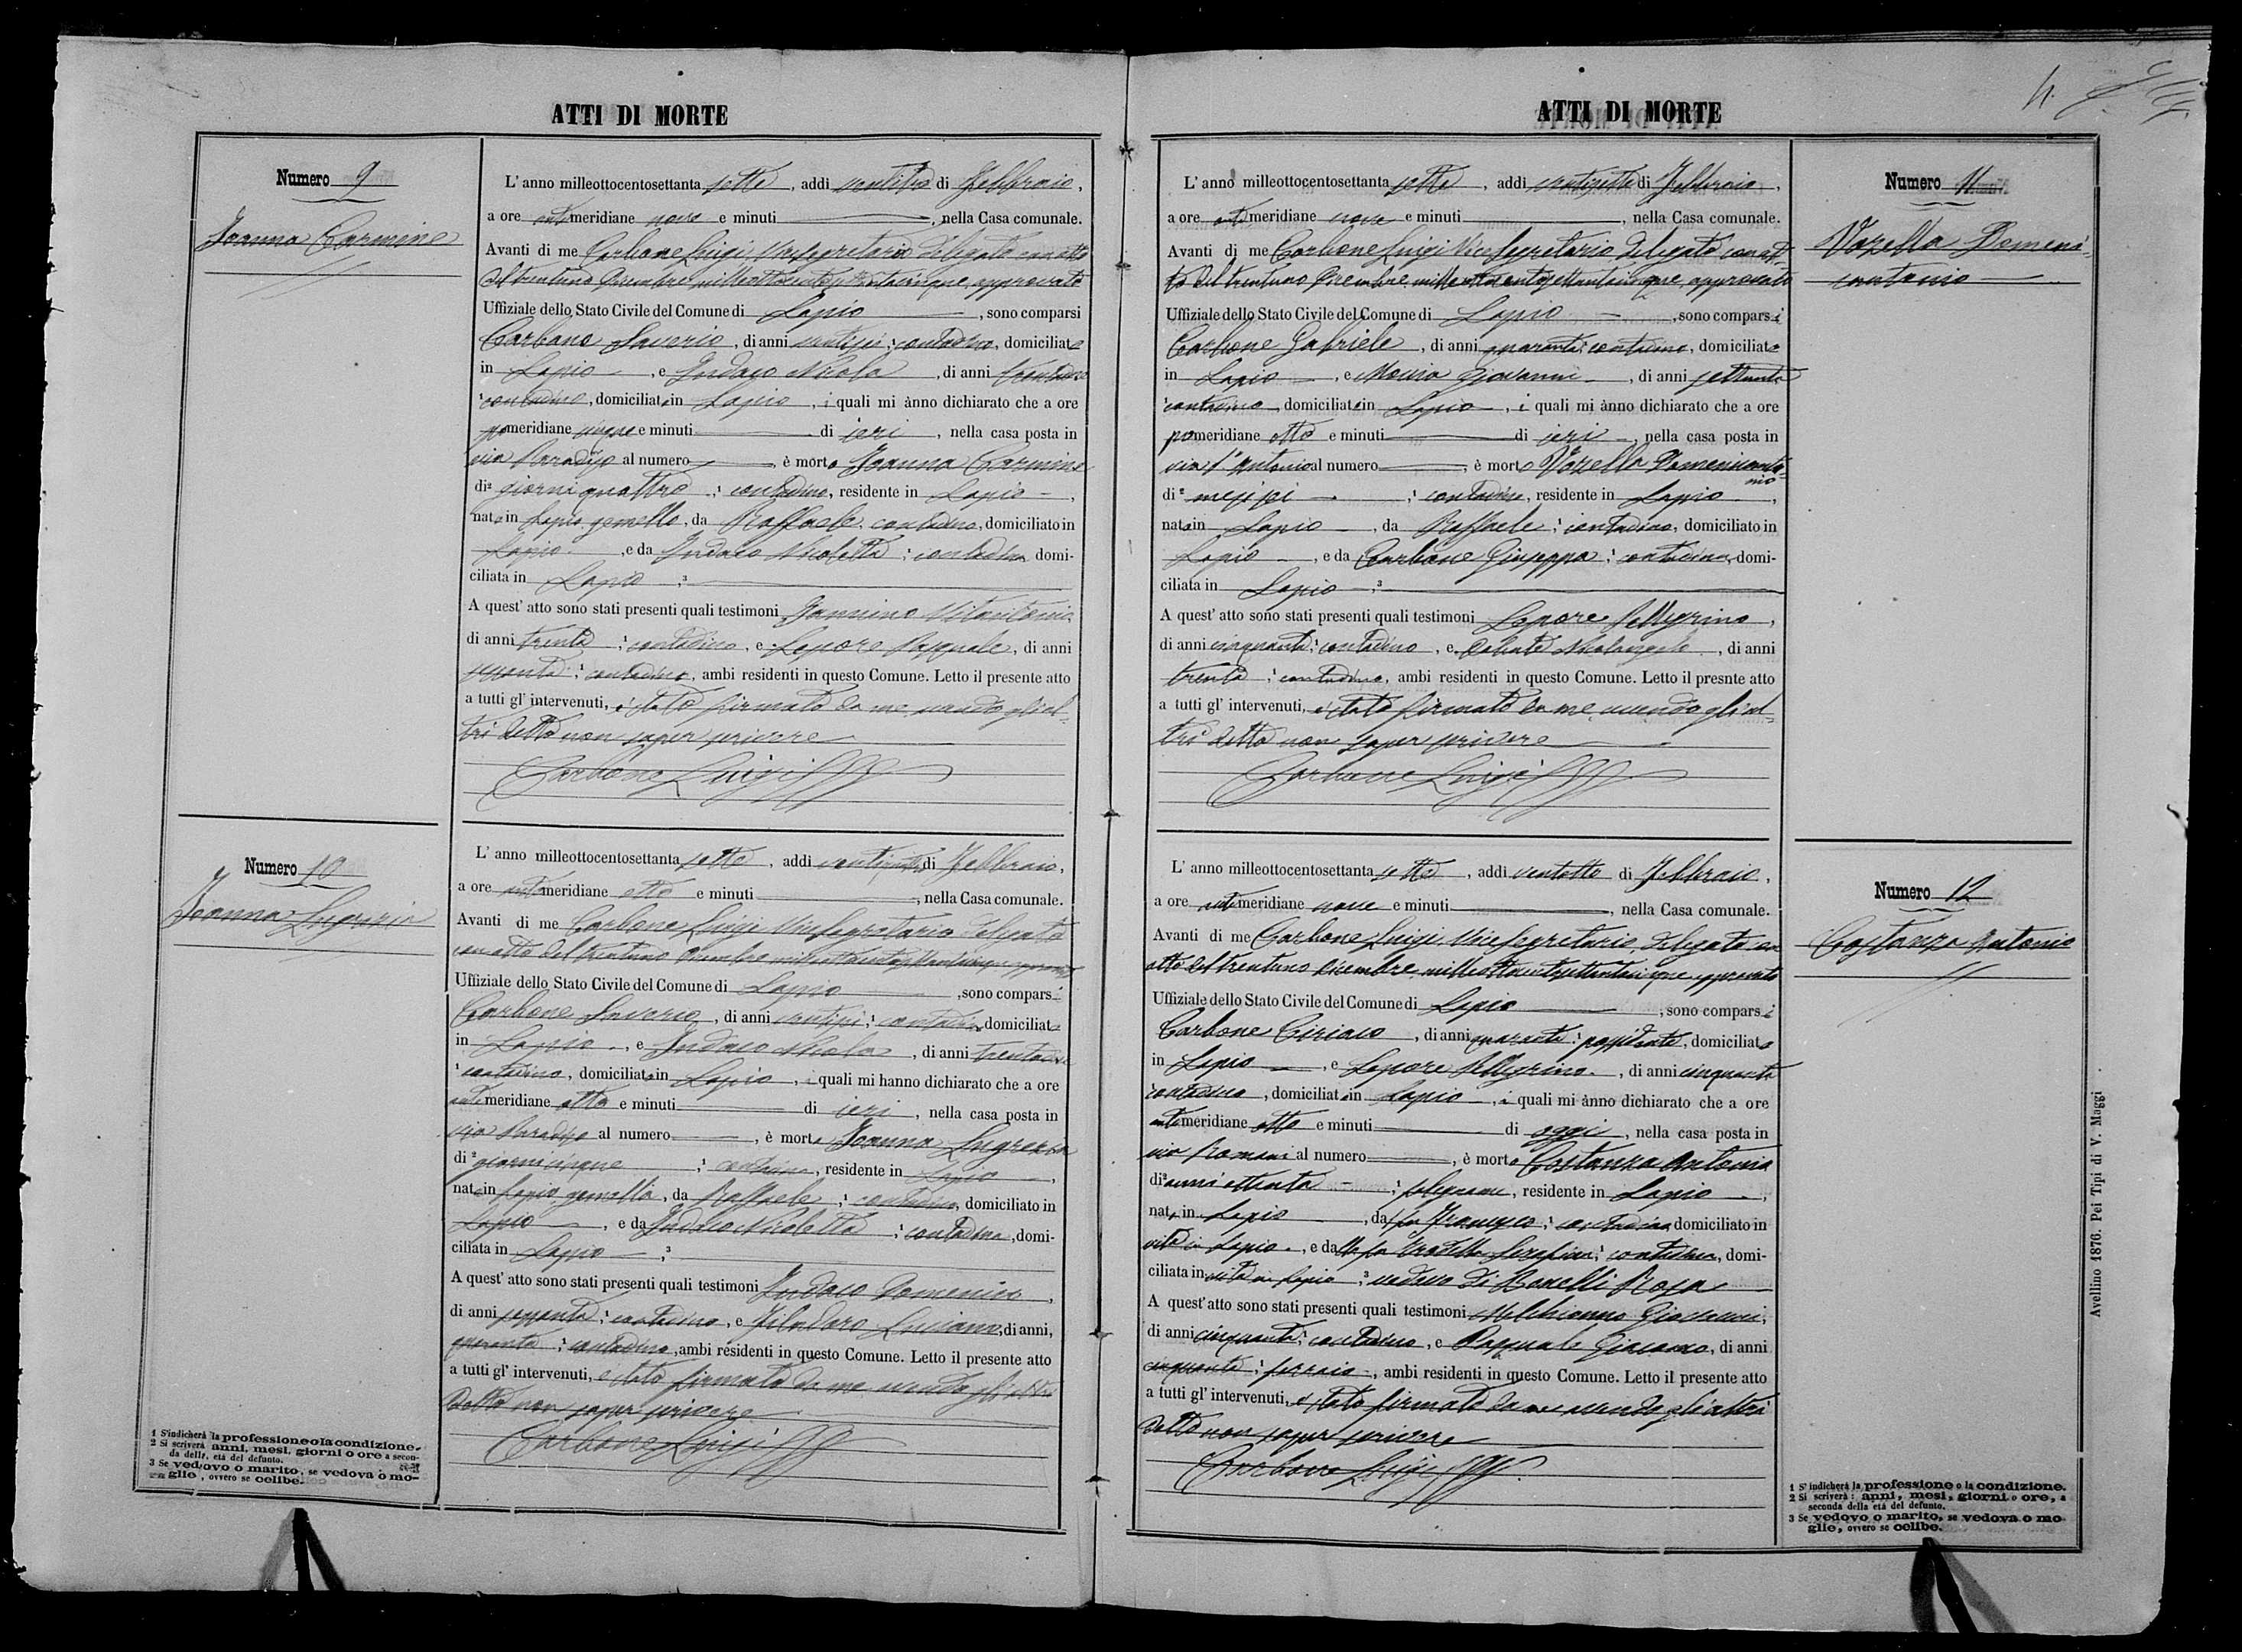 ATTI DI MORTE
Numero 9
Joanna Carmine
L' anno milleottocentosettanta sette, addi ventitre di Febbraio,
a ore antimeridiane nove e minuti , nella Casa comunale.
Avanti di me Carbone Luigi, Vicesegretario Delegato con atto
del trentuno Dicembre milleottocentosettantacinque, approvato
Uffiziale dello Stato Civile del Comune di Lapio , sono comparsi
Carbone Saverio, di anni ventisei, contadino, domiciliato
in Lapio , e Nicola , di anni
contadino, domiciliato in Lapio , i quali mi ànno dichiarato che a ore
pomeridiane cinque e minuti di ieri , nella casa posta in
via Paradiso al numero , è morto Joanna Carmine
di² giorni quattro ; contadino, residente in Lapio ,
nato in Lapio gemello, da Raffaele contadino, domiciliato in
Lapio , e da Nicoletta ; contadina domi-
ciliata in Lapio ;³
A quest' atto sono stati presenti quali testimoni Vitantonio
di anni trenta ; contadino, e Lepore Pasquale, di anni
sessanta ; contadino, ambi residenti in questo Comune. Letto il presente atto
a tutti gl' intervenuti, è stato firmato da me avendo gli al-
tri detto non saper scrivere
Carbone Luigi
Numero 10
Joanna Lugrezia
L' anno milleottocentosettanta sette, addi di Febbraio,
a ore antimeridiane otto e minuti , nella Casa comunale.
Avanti di me Carbone Luigi Vicesegretario Delegato
con atto del trentuno Dicembre milleottocentosettantacinque approvato
Uffiziale dello Stato Civile del Comune di Lapio , sono comparsi
Carbone Saverio, di anni ventisei ; contadino domiciliato
in Lapio , e Nicola , di anni
contadino, domiciliato in Lapio , i quali mi hanno dichiarato che a ore
antimeridiane otto e minuti di ieri , nella casa posta in
via Paradiso al numero , è morta Joanna Lugrezia
di² giorni cinque ; contadina, residente in Lapio ,
nata in Lapio gemella, da Raffaele ; contadino, domiciliato in
Lapio , e da Nicoletta ; contadina, domi-
ciliata in Lapio ;³
A quest' atto sono stati presenti quali testimoni Domenico ,
di anni sessanta ; contadino, e Filadoro Luciano, di anni,
quaranta ; contadino, ambi residenti in questo Comune. Letto il presente atto
a tutti gl' intervenuti, è stato firmato da me avendo gli altri
detto non saper scrivere
Carbone Luigi
1 S'indicherà la professione o la condizione.
2 Si scriverà anni, mesi, giorni o ore a secon-
da della età del defunto.
3 Se vedovo o marito, se vedova o mo-
glie, ovvero se celibe.
ATTI DI MORTE
Numero 11
Vozella Domeni-
cantonio
L' anno milleottocentosettanta sette, addi ventisette di Febbraio,
a ore antimeridiane nove e minuti , nella Casa comunale.
Avanti di me Carbone Luigi Vicesegretario Delegato con at-
to del trentuno Dicembre milleottocentosettantacinque, approvato
Uffiziale dello Stato Civile del Comune di Lapio , sono comparsi
Carbone Gabriele , di anni quaranta contadino, domiciliato
in Lapio , e Giovanni , di anni settanta
contadino, domiciliato in Lapio , i quali mi ànno dichiarato che a ore
pomeridiane otto e minuti di ieri , nella casa posta in
via S. Antonio al numero , è morto Vozella Domenicanto-
nio
di² mesi sei ; contadino, residente in Lapio ,
nato in Lapio , da Raffaele ; contadino, domiciliato in
Lapio , e da Carbone Giuseppa ; contadina, domi-
ciliata in Lapio ;³
A quest' atto sono stati presenti quali testimoni Lepore Pellegrino ,
di anni cinquanta ; contadino , e Nicolangelo , di anni
trenta ; contadino, ambi residenti in questo Comune. Letto il presnte atto
a tutti gl' intervenuti, è stato firmato da me, avendo gli al-
tri detto non saper scrivere
Carbone Luigi
Numero 12
Costanza Antonio
L' anno milleottocentosettanta sette , addi ventotto di Febbraio,
a ore antimeridiane nove e minuti , nella Casa comunale.
Avanti di me Carbone Luigi Vicesegretario, Delegato con
atto del trentuno Dicembre milleottocentosettantacinque, approvato
Uffiziale dello Stato Civile del Comune di Lapio , sono comparsi
Carbone Ciriaco , di anni quaranta ; possidente, domiciliato
in Lapio , e Lepore Pellegrino , di anni cinquanta
contadino , domiciliato in Lapio , i quali mi ànno dichiarato che a ore
antimeridiane otto e minuti di oggi , nella casa posta in
via Romani al numero , è morto Costanza Antonio
di² anni ottanta ; falegname, residente in Lapio ,
nato in Lapio , da fu Francesco ; contadino domiciliato in
vita in Lapio , e dalla fu Serafina ; contadina, domi-
ciliata in vita in Lapio ;³ vedovo di Rosa
A quest'atto sono stati presenti quali testimoni Melchionno Giovanni,
di anni cinquanta ; contadino, e Pasquale Giacomo, di anni
cinquanta ; ferraio , ambi residenti in questo Comune. Letto il presente atto
a tutti gl' intervenuti, è stato firmato da me avendo gli altri
detto non saper scrivere
Carbone Luigi
1 S'indicherà la professione o la condizione.
2 Si scriverà : anni, mesi, giorni o ore, a
seconda della età del defunto.
3 Se vedovo o marito, se vedova o mo-
glie, ovvero se celibe.
Avellino 1876. Pei Tipi di V. Maggi